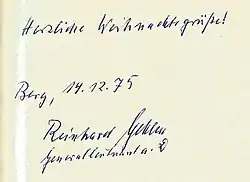 Herzliche Weihnachtsgrüße!
Berg, 14.12.75
Reinhard Gehlen
Generalleutnant a. D